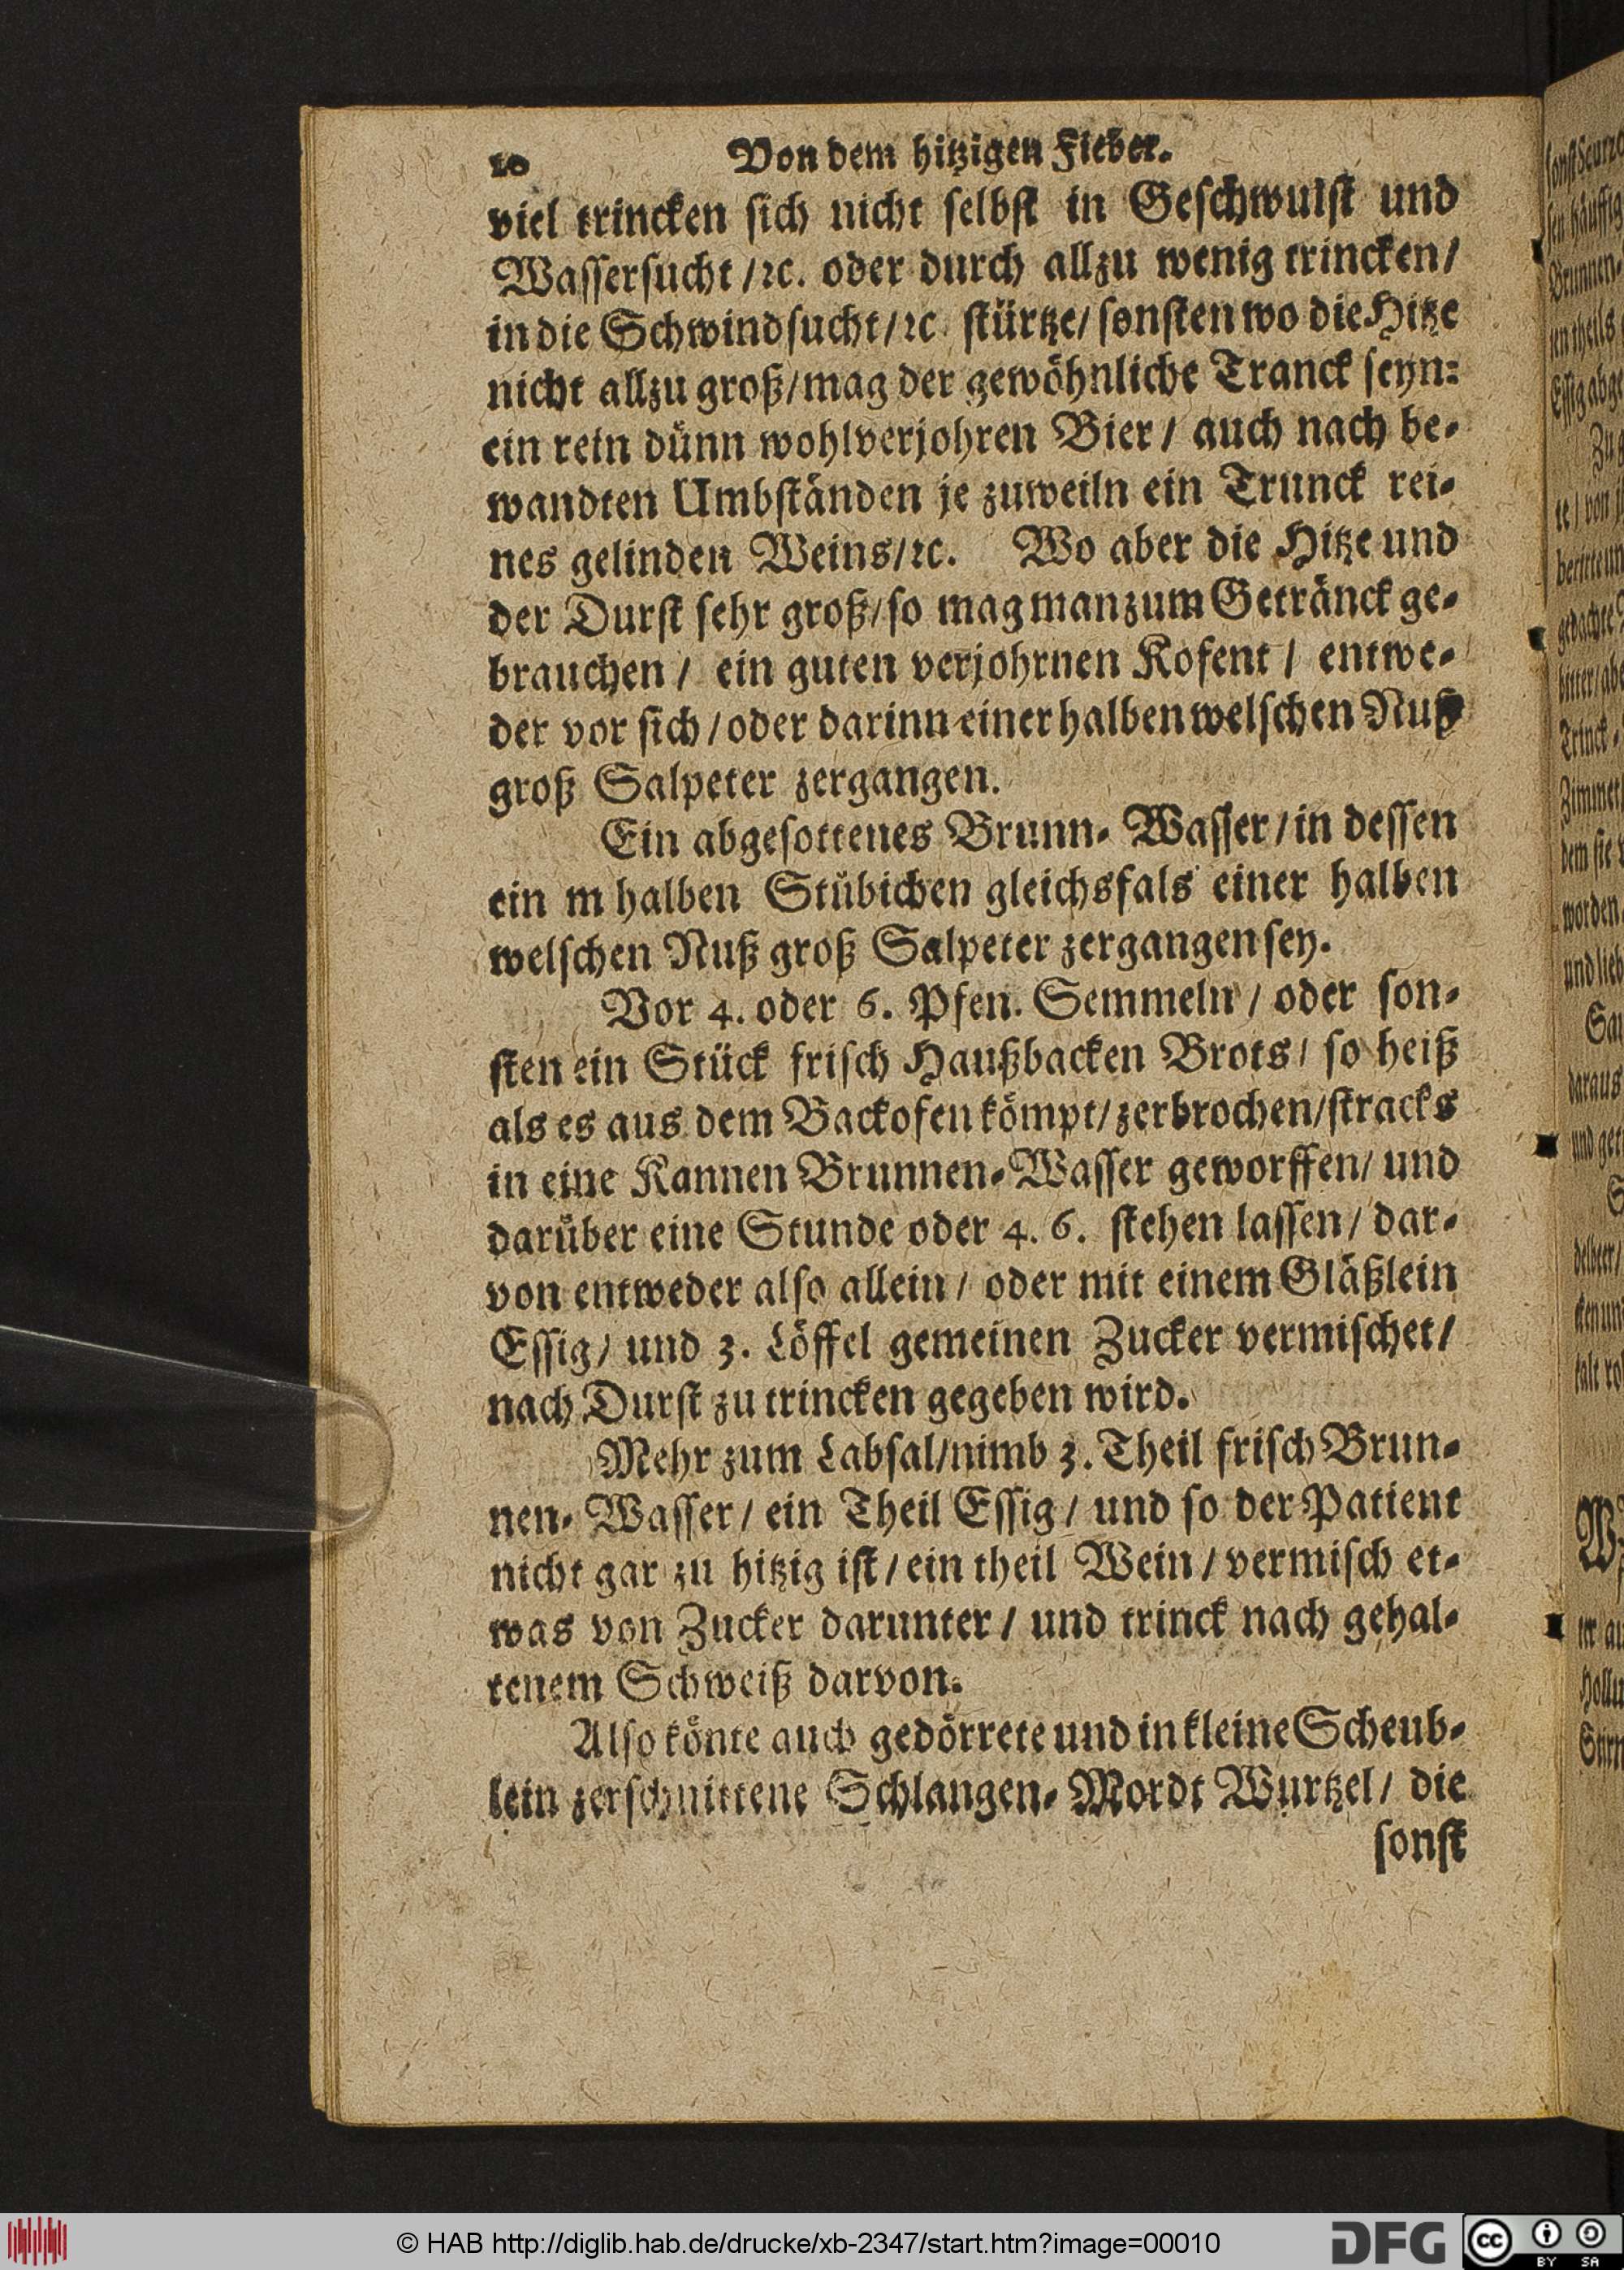 10 Von dem hitzigen Fieber.
viel trincken sich nicht selbst in Geschwulst und
Wassersucht /ꝛc. oder durch allzu wenig trincken/
in die Schwindsucht/ꝛc stürtze/ sonsten wo die Hitze
nicht allzu groß/mag der gewöhnliche Tranck seyn:
ein rein dünn wohlverjohren Bier / auch nach be-
wandten Umbständen je zuweiln ein Trunck rei-
nes gelinden Weins/ꝛc. Wo aber die Hitze und
der Durst sehr groß/so mag man zum Getränck ge-
brauchen / ein guten verjohrnen Kofent / entwe-
der vor sich / oder darinn einer halben welschen Nuß
groß Salpeter zergangen.
Ein abgesottenes Brunn-Wasser/in dessen
ein m halben Stübichen gleichsfals einer halben
welschen Nuß groß Salpeter zergangen sey.
Vor 4. oder 6. Pfen. Semmeln / oder son-
sten ein Stück frisch Haußbacken Brots/ so heiß
als es aus dem Backofen kömpt/zerbrochen/stracks
in eine Kannen Brunnen-Wasser geworffen/ und
darüber eine Stunde oder 4. 6. stehen lassen/ dar-
von entweder also allein / oder mit einem Gläßlein
Essig/ und 3. Löffel gemeinen Zucker vermischet/
nach Durst zu trincken gegeben wird.
Mehr zum Labsal/nimb 3. Theil frisch Brun-
nen-Wasser/ ein Theil Essig / und so der Patient
nicht gar zu hitzig ist / ein theil Wein / vermisch et-
was von Zucker darunter / und trinck nach gehal-
tenem Schweiß darvon.
Also könte auch gedörrete und in kleine Scheub-
lein zerschnittene Schlangen-Mordt Wurtzel/ die
sonst
© HAB http://diglib.hab.de/drucke/xb-2347/start.htm?image=00010
DFG
cc BY SA